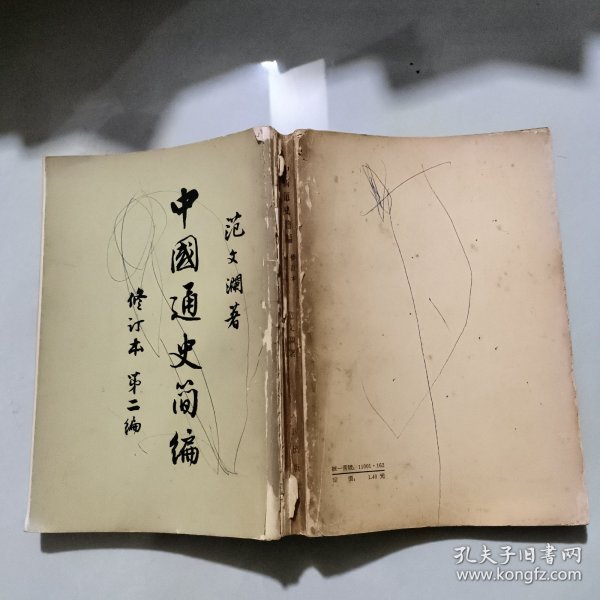 范文瀾著
中國通史简编
修订本 第二编
統一書號：11001·162
定價：1.40 元
孔夫子旧书网
www.kongfz.com